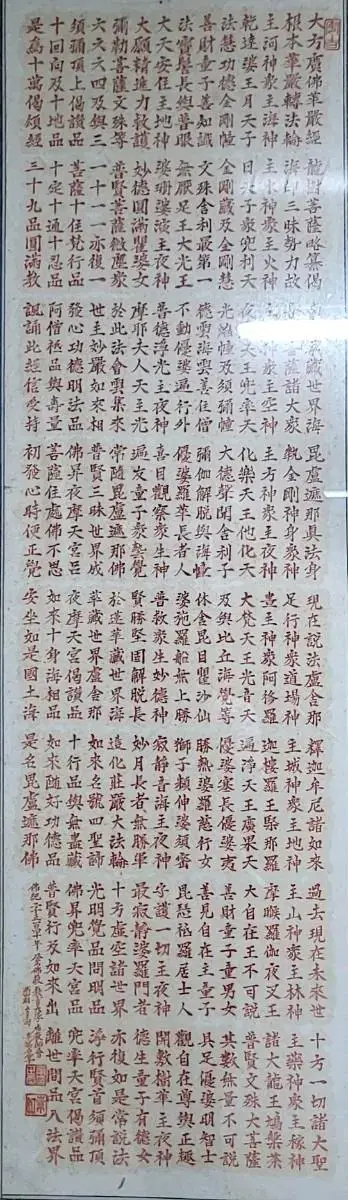 大方廣佛華嚴經 龍樹菩薩略纂偈 南無華藏世界海 毘盧遮那眞法身 現在說法盧舍那 釋迦牟尼諸如來 過去現在未來世 十方一切諸大聖
根本華嚴轉法輪 海印三昧勢力故 普賢菩薩諸大衆 執金剛神身衆神 足行神衆道場神 主城神衆主地神 主山神衆主林神 主藥神衆主稼神
主河神衆主海神 主水神衆主火神 主風神衆主空神 主方神衆主夜神 主晝神衆阿修羅 迦樓羅王緊那羅 摩睺羅伽夜叉王 諸大龍王鳩槃茶
乾達婆王月天子 日天子衆忉利天 夜摩天王兜率天 化樂天王他化天 大梵天王光音天 遍淨天王廣果天 大自在王不可說 普賢文殊大菩薩
法慧功德金剛幢 金剛藏及金剛慧 光焰幢及須彌幢 大德聲聞舍利子 及與比丘海覺等 優婆塞長優婆夷 善財童子童男女 其數無量不可說
善財童子善知識 文殊舍利最第一 德雲海雲善住僧 彌伽解脫與海幢 休舍毘目瞿沙仙 勝熱婆羅慈行女 善見自在主童子 具足優婆明智士
法寶髻長與普眼 無厭足王大光王 不動優婆遍行外 優婆羅華長者人 婆施羅船無上勝 獅子頻伸婆須密 毘瑟祗羅居士人 觀自在尊與正趣
大天安住主地神 婆珊婆演主夜神 普德淨光主夜神 喜目觀察衆生神 普救衆生妙德神 寂靜音海主夜神 守護一切主夜神 開敷樹華主夜神
大願精進力救護 妙德圓滿瞿婆女 摩耶夫人天主光 遍友童子衆藝覺 賢勝堅固解脫長 妙月長者無勝軍 最寂靜婆羅門者 德生童子有德女
彌勒菩薩文殊等 普賢菩薩微塵衆 於此法會雲集來 常隨毘盧遮那佛 於蓮華藏世界海 造化莊嚴大法輪 十方虛空諸世界 亦復如是常說法
六六六四及與三 一十一一亦復一 世主妙嚴如來相 普賢三昧世界成 華藏世界盧舍那 如來名號四聖諦 光明覺品問明品 淨行賢首須彌頂
須彌頂上偈讚品 菩薩十住梵行品 發心功德明法品 佛昇夜摩天宮品 夜摩天宮偈讚品 十行品與無盡藏 佛昇兜率天宮品 兜率天宮偈讚品
十回向及十地品 十定十通十忍品 阿僧祇品與壽量 菩薩住處佛不思 如來十身海相品 如來隨好功德品 普賢行及如來出 離世間品入法界
是為十萬偈頌經 三十九品圓滿教 諷誦此經信受持 初發心時便正覺 安坐如是國土海 是名毘盧遮那佛